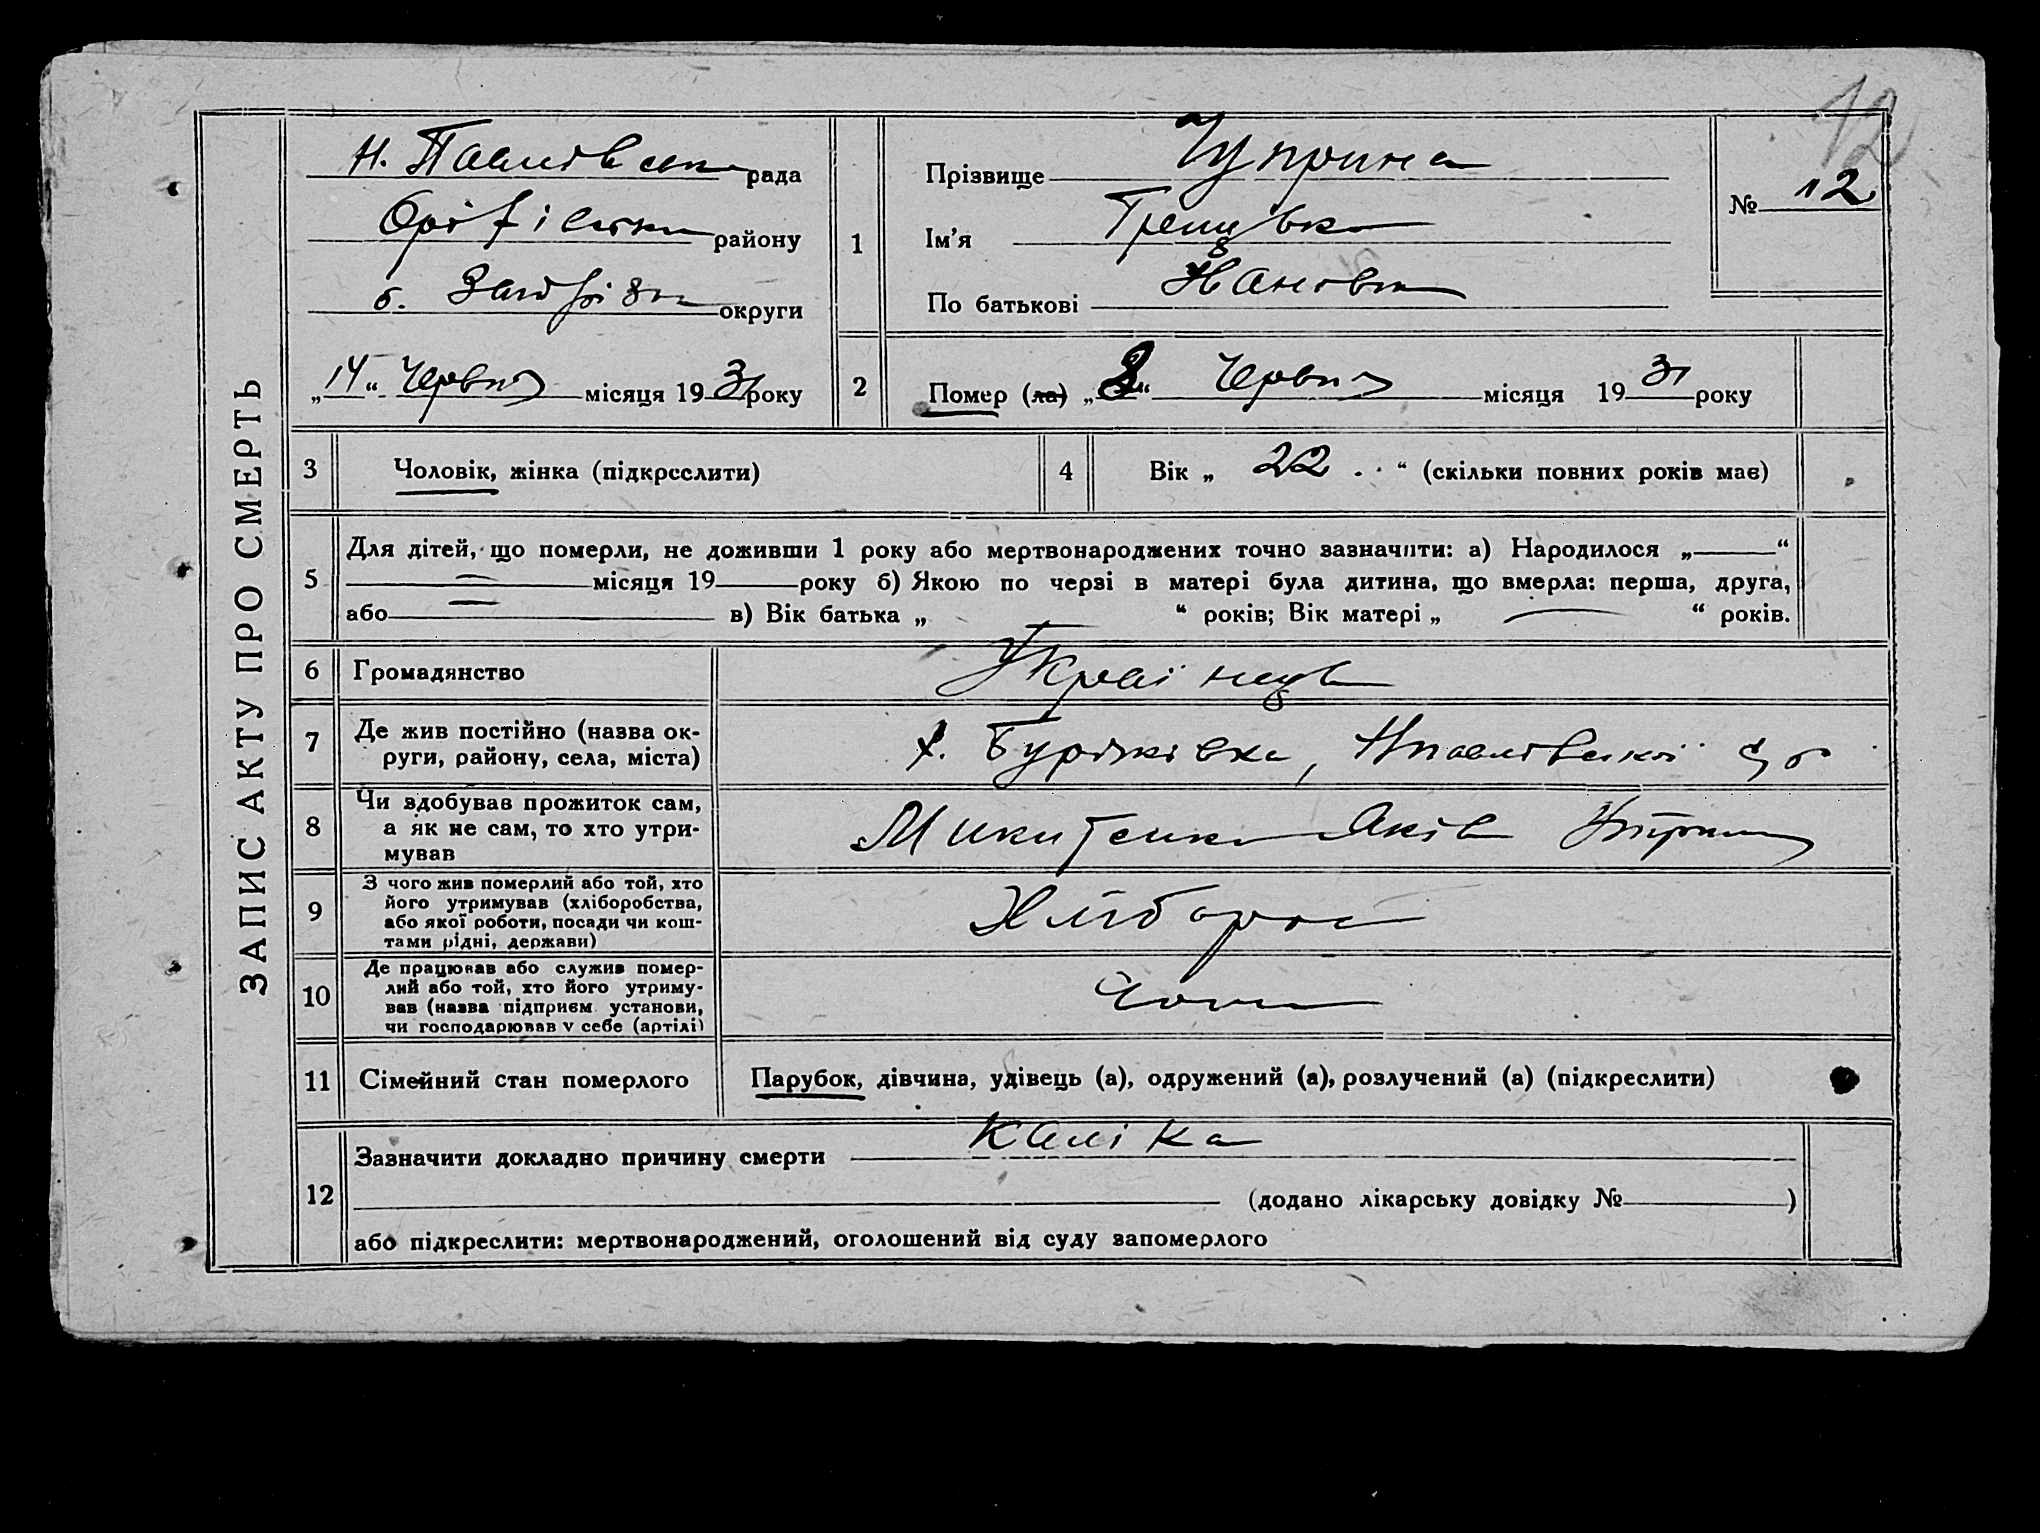 12
ЗАПИС АКТУ ПРО СМЕРТЬ
Н. Павлівська рада
Оріхівськ району
б. Запоріжж округи
„14“ Червня місяця 1931 року
1
Прізвище Чуприна
Ім'я
По батькові Іванович
№ 12
2
Помер (ла) „8“ Червня місяця 1931 року
3
Чоловік, жінка (підкреслити)
4
Вік „ 22 “ (скільки повних років має)
5
Для дітей, що померли, не доживши 1 року або мертвонароджених точно зазначити: а) Народилося „—“
місяця 19 року б) Якою по черзі в матері була дитина, що вмерла: перша, друга,
або в) Вік батька „ “ років; Вік матері „ — “ років.
6
Громадянство
Українець
7
Де жив постійно (назва ок-
руги, району, села, міста)
х.
8
Чи здобував прожиток сам,
а як не сам, то хто утри-
мував
Микитенко Яків
9
З чого жив померлий або той, хто
його утримував (хліборобства,
або якої роботи, посади чи кош-
тами рідні, держави)
Хлібороб
10
Де працював або служив помер-
лий або той, хто його утриму-
вав (назва підприєм. установи,
чи господарював у себе (артілі)
11
Сімейний стан померлого
Парубок, дівчина, удівець (а), одружений (а), розлучений (а) (підкреслити)
12
Зазначити докладно причину смерти каліка
(додано лікарську довідку № )
або підкреслити: мертвонароджений, оголошений від суду запомерлого